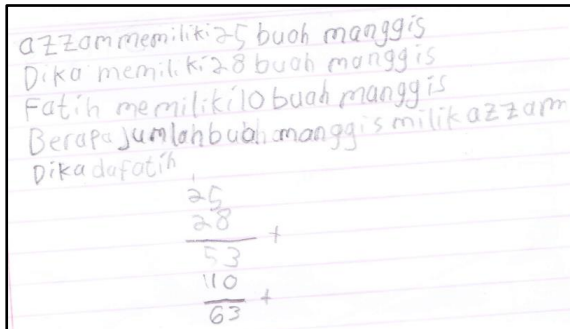 azzam memiliki 25 buah manggis
Dika memiliki 28 buah manggis
Fatih memiliki 10 buah manggis
Berapa jumlah buah manggis milik azzam
Dika dafatih
1
25
28
+
53
10
+
63